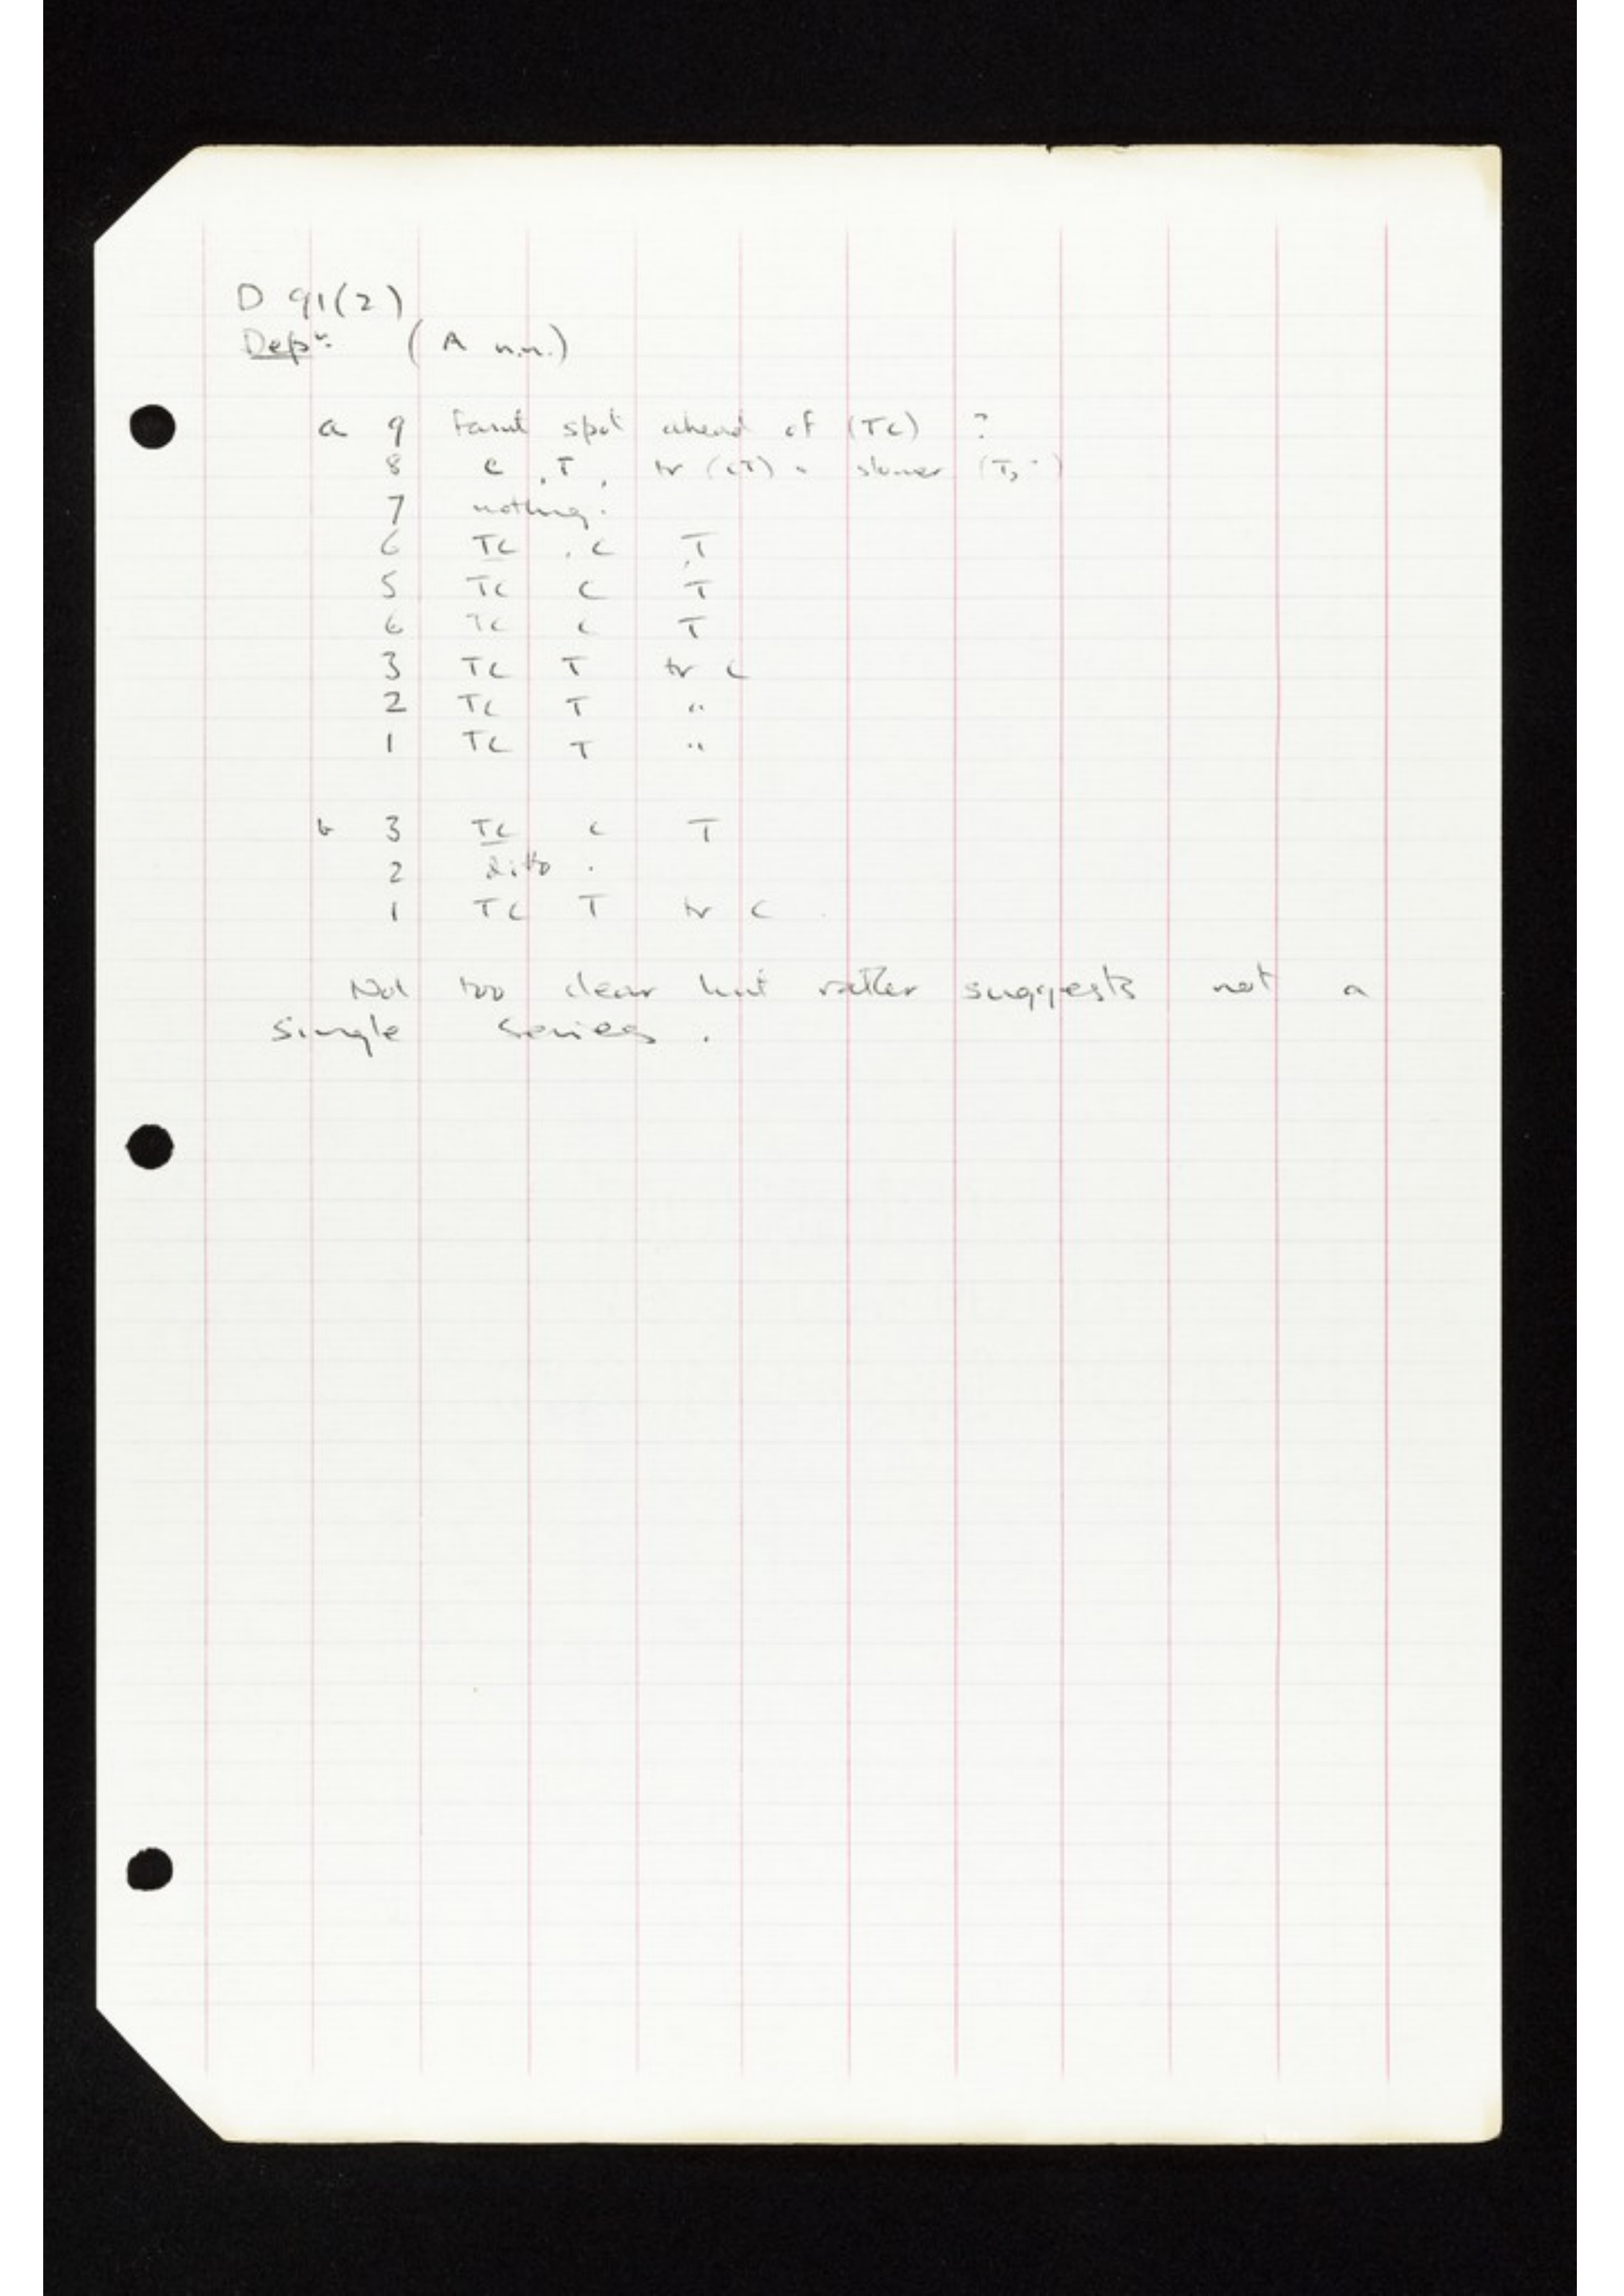 D 91(2)
Depn. (A n.n.)
a 9 faint spot ahead of (TC) ?
8 C, T, tr (CT) slower
7 nothing.
6 TC, C, T
5 TC C T
6 TC C T
3 TC T tr C
2 TC T "
1 TC T "
b 3 TC C T
2 ditto.
1 TC T tr C
Not too clear but rather suggests not a
single series.